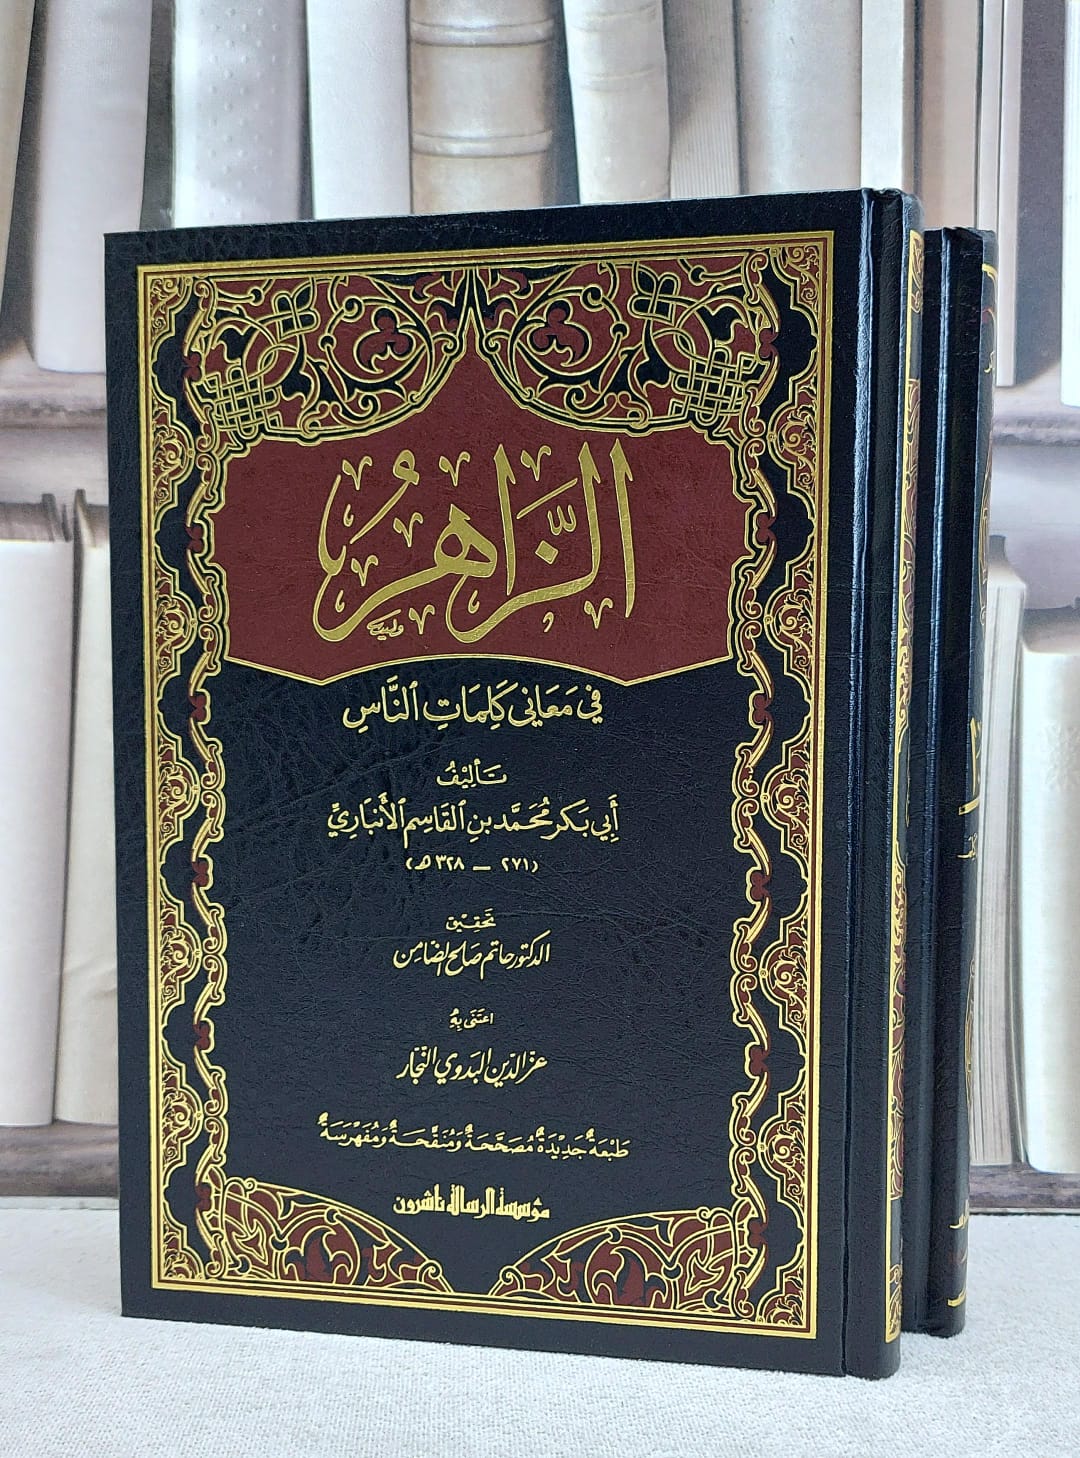 الزَّاهِرُ
في مَعَاني كَلِمَاتِ ٱلنَّاسِ
تَأليْفُ
أَبي بَكر مُحَمَّد بن ٱلقَاسِم ٱلأَنبَاريِّ
(٢٧١ – ٣٢٨ ه)
تحقيق
الدكتور حاتم صَالح الضامِن
اعتَنى بِهِ
عز الدّين البَدوي النجّار
طَبْعَةٌ جَدِيْدَةٌ مُصَحَّحَةٌ وَمُنَقَّحَةٌ وَمُفَهْرَسَةٌ
مؤسسة الرسالة ناشرون